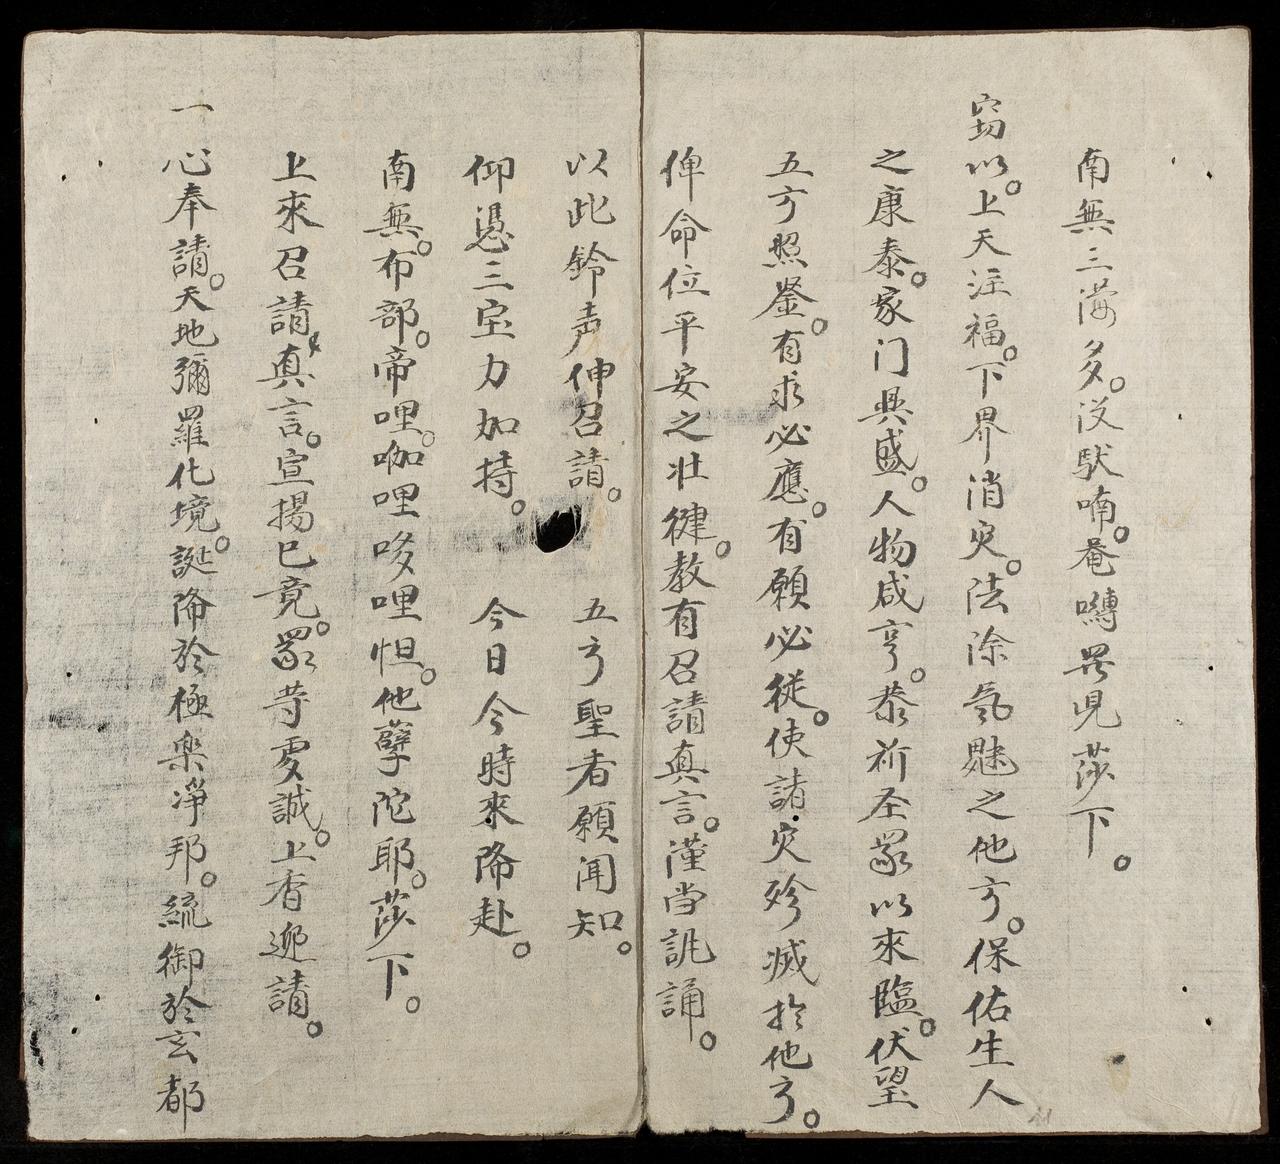 南無三満多。没馱喃。菴嚩𭔞皃莎下。
窃以。上天注福。下界消灾。法除氛魅之他方。保佑生人
之康泰。家门興盛。人物咸亨。恭祈圣眾以來臨。伏望
五方照鉴。有求必應。有願必從。使諸灾殄滅扵他方。
俾命位平安之壮徤。教有召請真言。謹当諷誦。
以此鈴声伸召請。 五方聖者願闻知。
仰憑三宝力加持。 今日今時來降赴。
南無。布部。帝哩。咖哩哆哩怛。他孽陀耶。莎下。
上來召請真言。宣揚已竟。眾等虔誠。上香迎請。
一心奉請。天地彌羅化境。誕降於極楽凈邦。統御於玄都